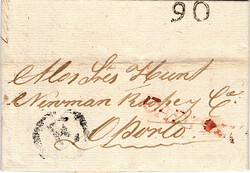 90
Mos Srs Hunt
Newman Roope y Ca
Oporto